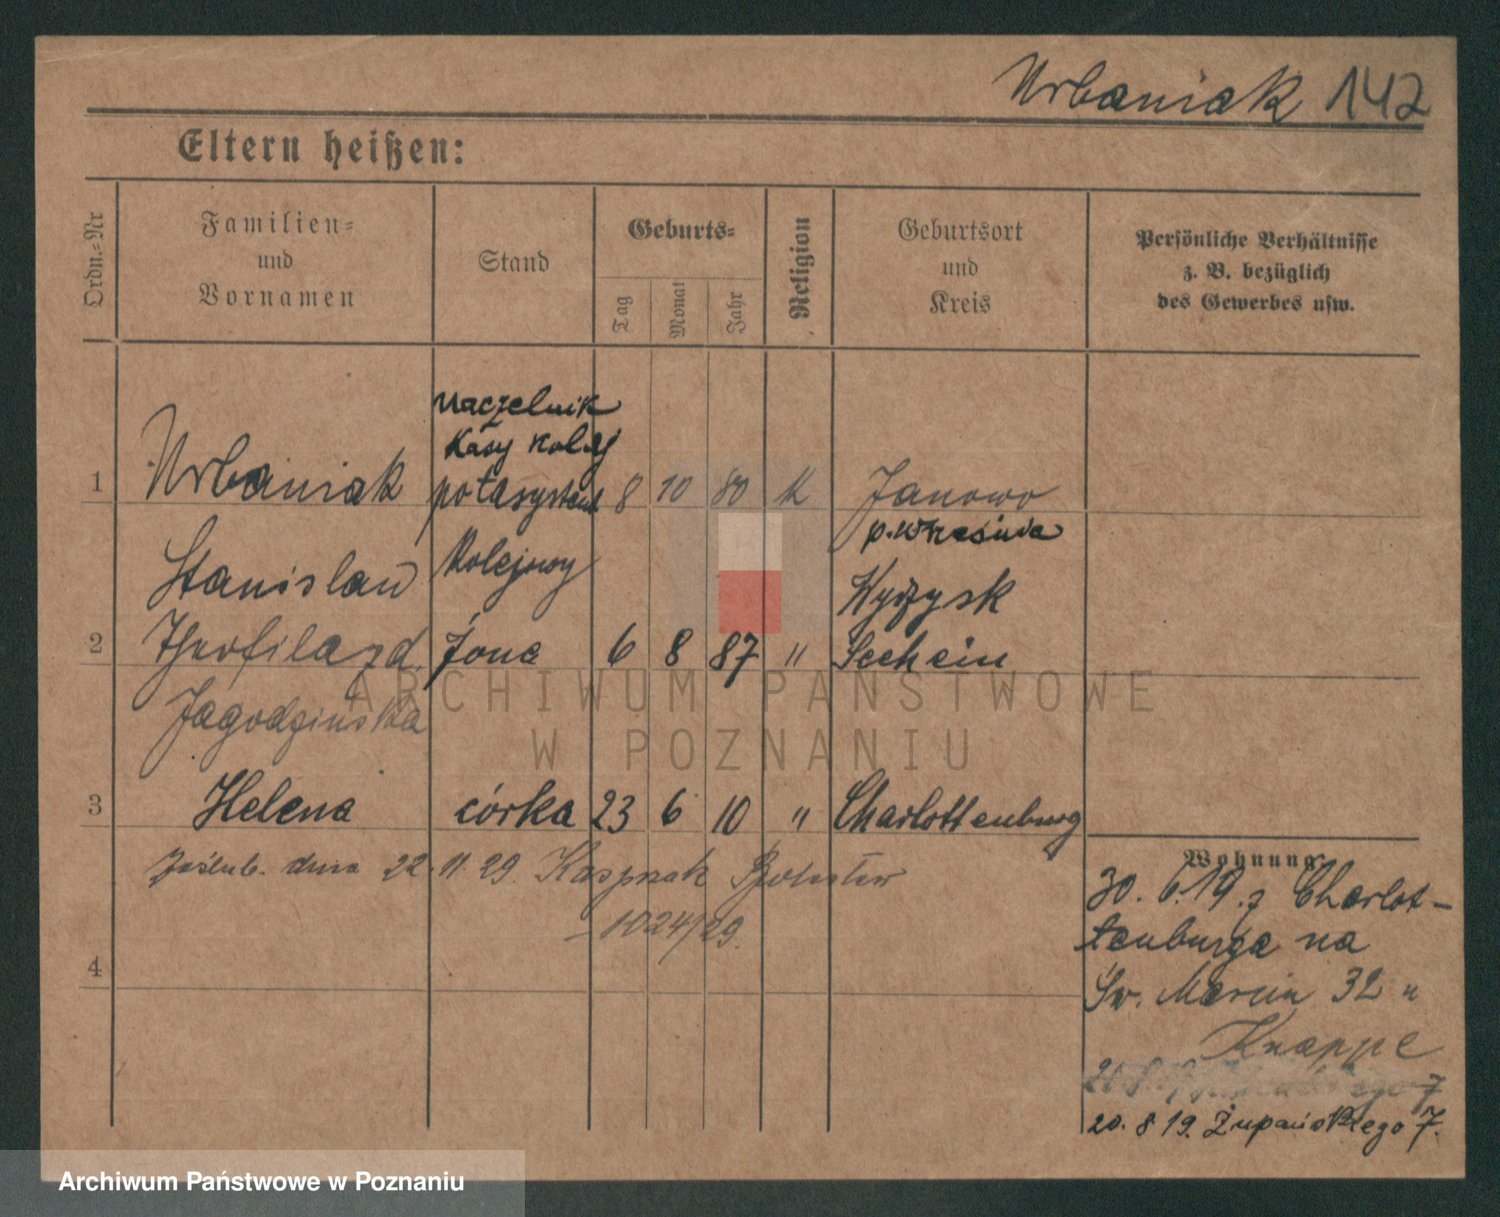 Urbaniak 142
Eltern heißen:
Ordn.=Nr
Familien=
und
Vornamen
Stand
Geburts=
Tag
Monat
Jahr
Religion
Geburtsort
und
Kreis
Persönliche Verhältnisse
z. B. bezüglich
des Gewerbes usw.
naczelnik
Kasy kolej
1 Urbaniak 8 10 80 K Janowo
p. Września
Stanislaw Kolejowy
2 Theofila zd. żona 6 8 87 "
Jagodzinska
3 Helena córka 23 6 10 " Charlottenburg
Zaślub. dnia 22.11.29. Kasprzak
1024/29.
4
Wohnung
30. 6. 19. z Charlot-
tenburga na
Św. Marcin 32 u
Knappe
20. 8 19. Żupańskiego 7.
ARCHIWUM PAŃSTWOWE
W POZNANIU
Archiwum Państwowe w Poznaniu